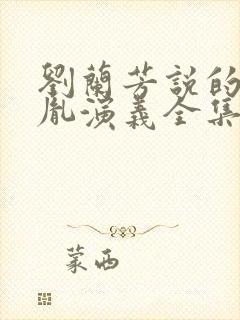 劉蘭芳說的
胤演義全集
蒙西